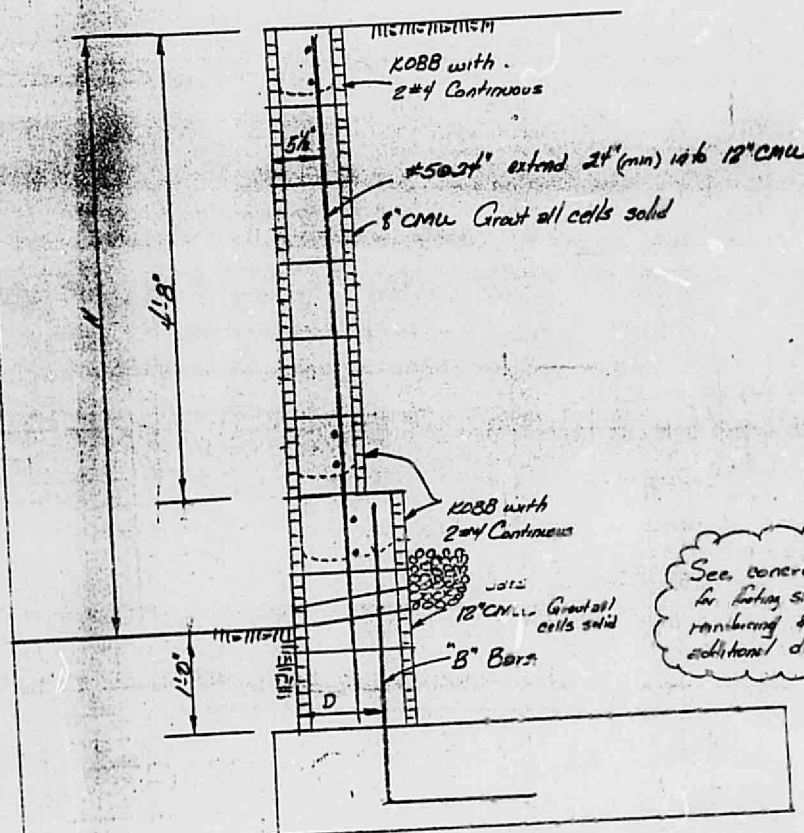 KOBB with
2#4 Continuous
5½"
#5@24" extend 24" (min) into 12" CMU
8" CMU Grout all cells solid
H
4'-8"
KOBB with
2#4 Continuous
12" CMU Grout all
cells solid
See concre
for footing si
reinforcing &
additional d
"B" Bars
1'-0"
D